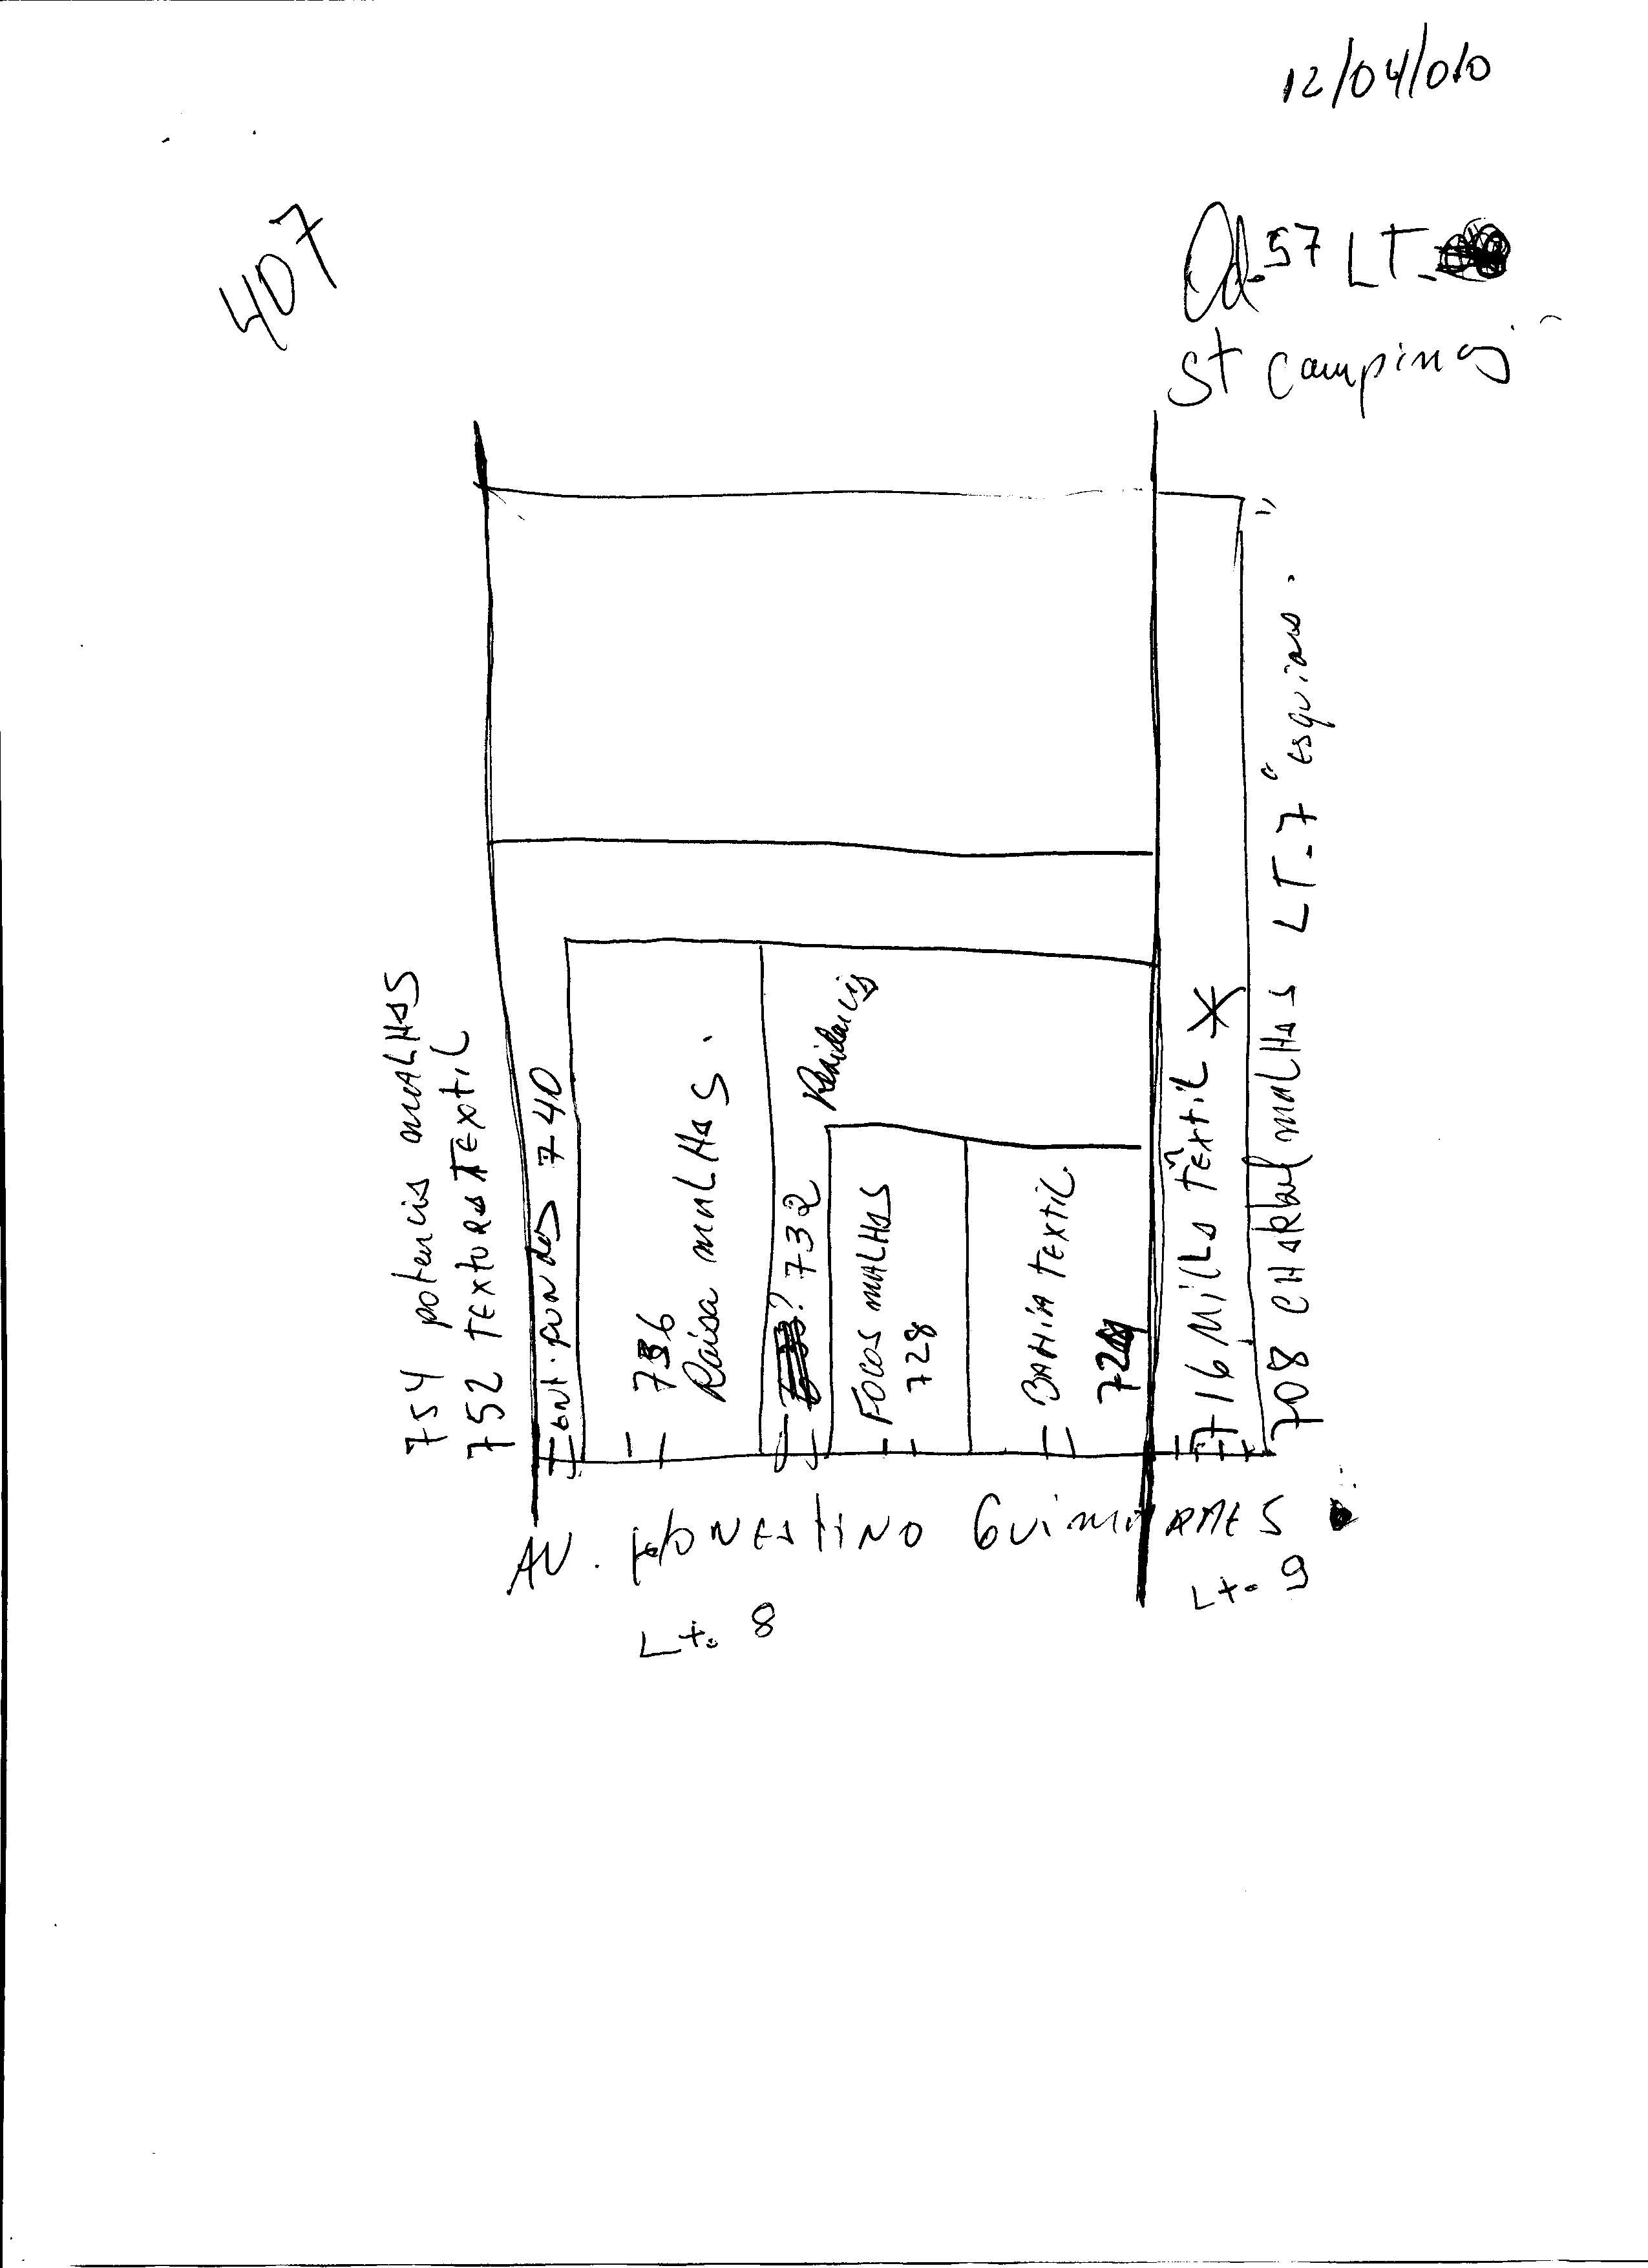 12/04/010
407
Qd. 57 LT-
St Campinas
754 potencia MALHAS
752 TEXTURAS TEXTIL
ent. fundos 740
736
Raisa MALHAS.
? 732
Residencia
FOCOS MALHAS
728
BAHIA TEXTIL
716 MILLS TEXTIL *
708 CHARBEL MALHAS LT-7 "ESQUINA."
AV. HONESTINO GUIMARAES
Lt. 9
Lt. 8